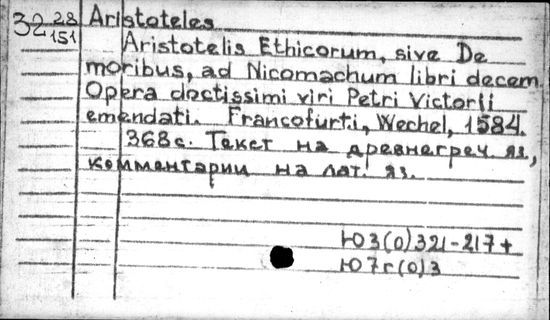 32 28/151 Aristoteles
Aristotelis Ethicorum, sive De
moribus, ad Nicomachum libri decem.
Opera doctissimi viri Petri Victorii
emendati. Francofurti, Wechel, 1584.
368 с. Текст на древнегреч. яз,
комментарии на лат. яз.
Ю3(0)321-217+
Ю7г(0)3